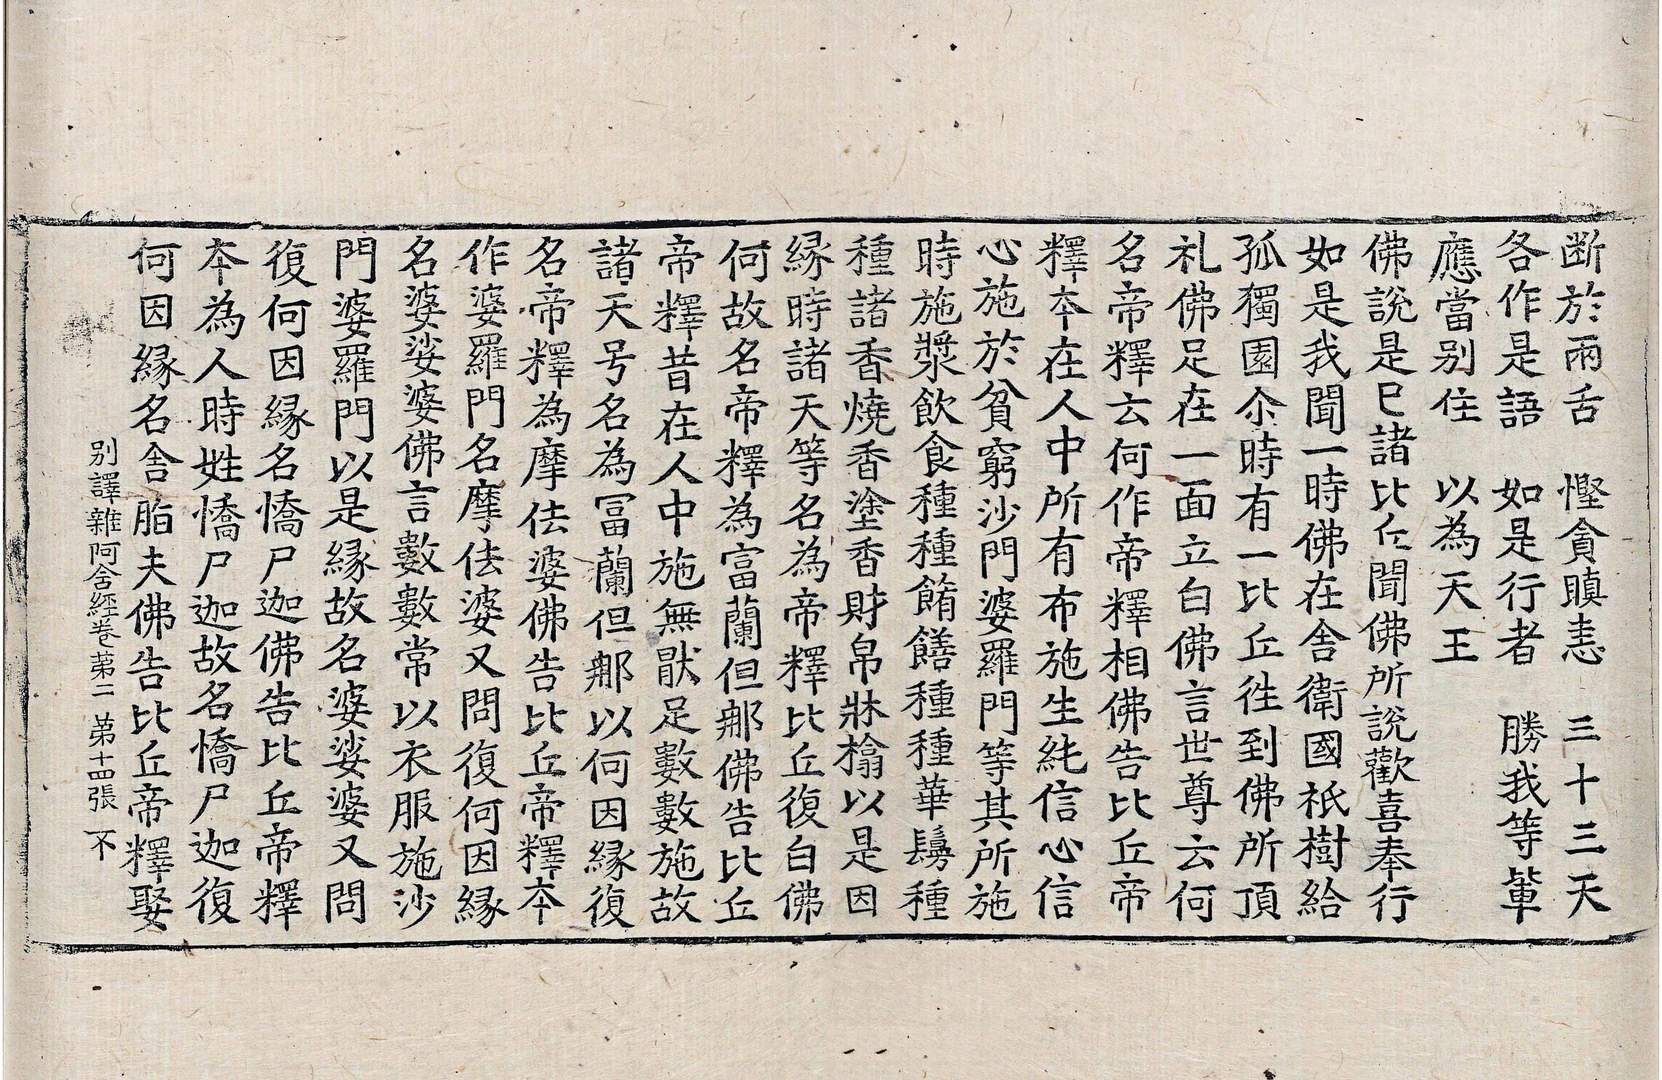 断於兩舌　慳貪瞋恚　三十三天
各作是語　如是行者　勝我等輩
應當别住　以為天王
佛說是已諸比丘聞佛所說歡喜奉行
如是我聞一時佛在舎衛國祇樹給
孤獨園尒時有一比丘徃到佛所頂
礼佛足在一面立白佛言世尊云何
名帝釋云何作帝釋相佛告比丘帝
釋本在人中所有布施生純信心信
心施於貧窮沙門婆羅門等其所施
時施漿飲食種種餚饍種種華鬘種
種諸香燒香塗香財帛牀榻以是因
縁時諸天等名為帝釋比丘復白佛
何故名帝釋為富蘭但那佛告比丘
帝釋昔在人中施無猒足數數施故
諸天号名為冨蘭但那以何因縁復
名帝釋為摩佉婆佛告比丘帝釋本
作婆羅門名摩佉婆又問復何因縁
名婆娑婆佛言數數常以衣服施沙
門婆羅門以是縁故名婆娑婆又問
復何因縁名憍尸迦佛告比丘帝釋
本為人時姓憍尸迦故名憍尸迦復
何因縁名舎脂夫佛告比丘帝釋娶
别譯雜阿含經卷苐二　苐十四張　不